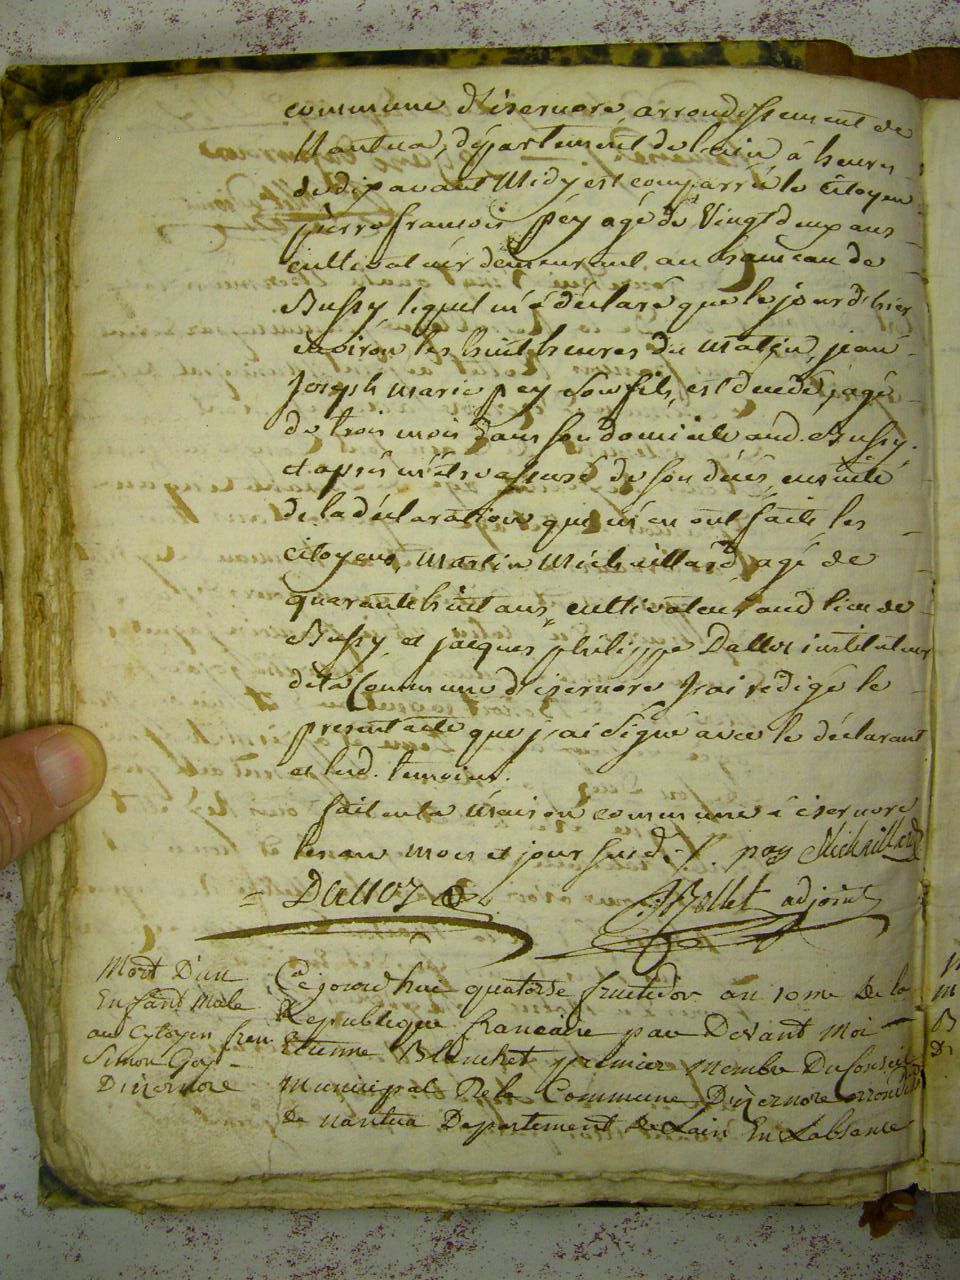 commune d'isernore, arrondissement de
Nantua, département de l'ain à heures
de dix avant Midy est comparrû le Citoyen
pierre francois pey agé de Vingt deux ans
cultivateur demeurant au hameau de
Bussy, lequel m'a déclaré que le jour d'hier
environ les huit heures du matin, jean
Joseph marie pey son fils, est décédé, agé
de trois mois dans son domicile aud. Bussy.
et après m'etre assuré de son décès, ensuite
de la déclaration que m'en ont faite les
citoyens, Martin Michaillard, agé de
quarante huit ans, cultivateur, aud. lieu de
Bussy, et jacques philippe Dalloz instituteur
de la Commune d'isernore J'ai rédigé le
present acte que j'ai signé avec le déclarant
et lesd. temoins.
fait en la Maison commune à isernore
les an mois et jour susdit. pey Michaillard
= DALLOZ
Bollet adjoint
Mort D'un
Enfant Male
au Cytoyen
Simon Goy
Disernore
Cejourd'hui quatorse fructidor an 10me de la
Republique francaise par Devant Moi
Etienne Blanchet premier membre Du Conseil
Municipal De la Commune Disernore
De nantua Departement de Lain En Labsence